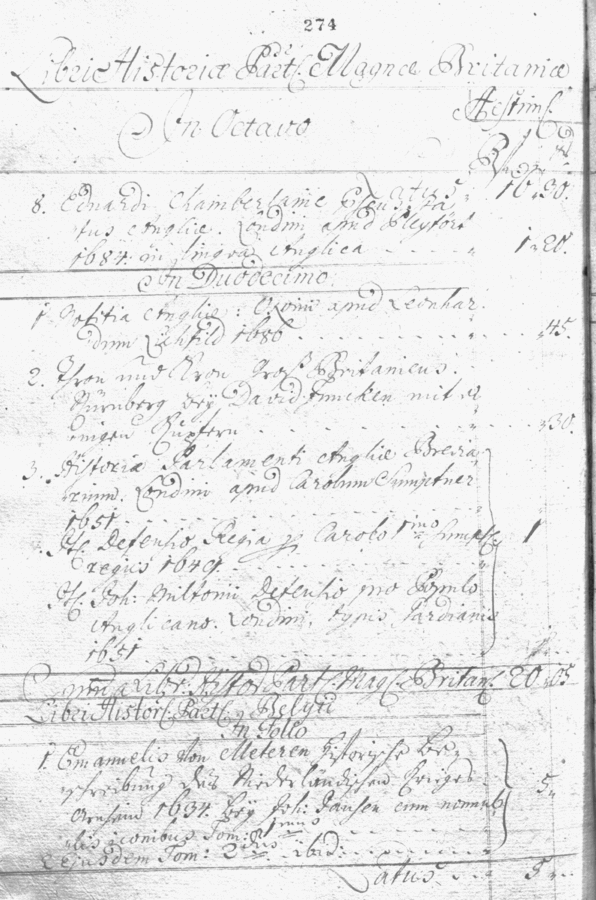 274
Libri Historiæ Part. Magnæ Britaniæ
Æstim.
In Octavo
8. Eduardi Chamberlaine
tus Angliæ. Londini apud
1684. in lingva Anglica . . . . 1 „ 20.
In Duodecimo.
1. Notitia Angliæ: Oxonii apud Leonhar
dum Lichfild 1686 . . . . „ 45.
2. Thron und Kron Gros Britanicus.
Nürnberg beÿ David Funcken mit
einigen Kupfern . . . . „ 30.
3. Historiæ Parlamenti Angliæ Brevia
rium. Londini apud Carolum Sumptner
1651
It. Defensio Regia Carolo 1mo Sumpt. 1
regiis 1649
It. Joh: Miltoni Defensio pro Populo
Anglicano. Londini, typis Dugardianis
1651
Summa Libr. Histor. Part. Mag. Britan. 20 „ 05
Libri Histor. Part. Belgii
In Folio
1. Emanuelis Von Meteren historische Be,
schreibung des Niederländischen Krieges
Arnheim 1634. beÿ Joh: Jansen cum nonnul 5 „
lis iconibus Tom: 1mus
Ejusdem Tom: 2dus ibid:
Latus . . . 5 „